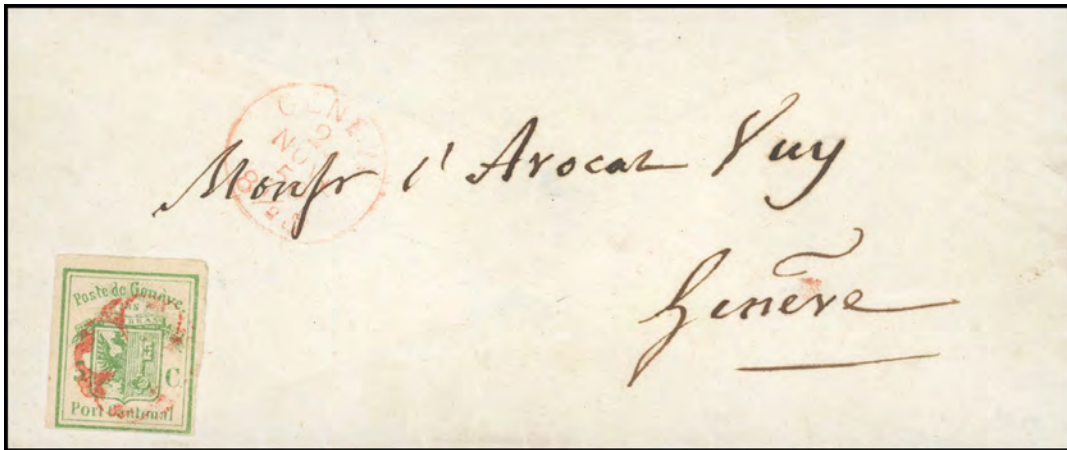 GENEV
2
NOV
Monsr l' Avocat Vuy
Genève
Poste de Genève.
C.
Port Cantonal